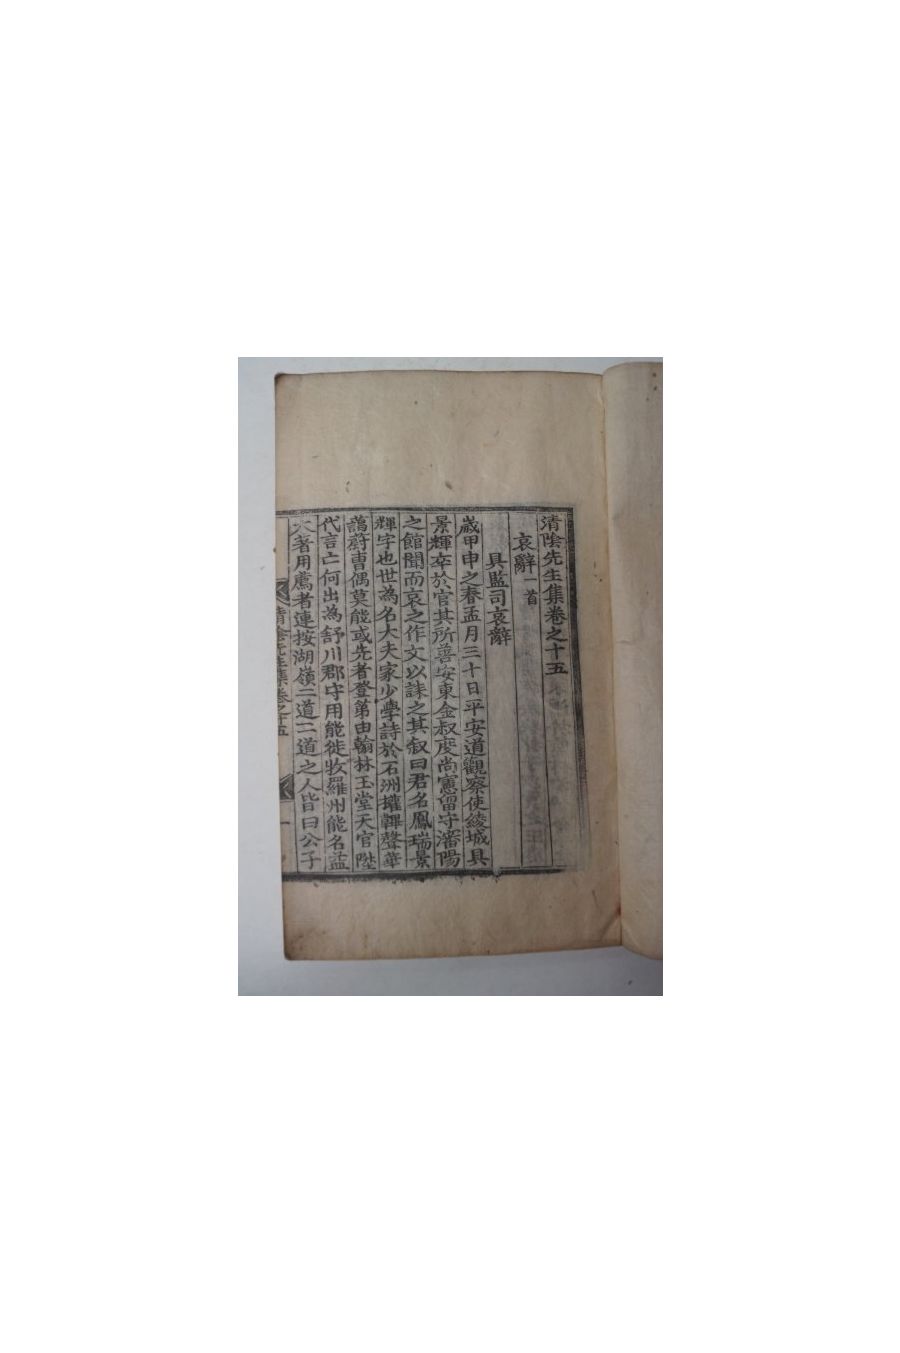 清陰先生集卷之十五
哀辭一首
具監司哀辭
歲甲申之春孟月三十日平安道觀察使綾城具
景輝卒於官其所善安東金叔度尚憲留守瀋陽
之館聞而哀之作文以誄之其叙曰君名鳳瑞景
輝字也世為名大夫家少學詩於石洲權韠聲華
藹蔚曹偶莫能或先者登第由翰林玉堂天官陞
代言亡何出為舒川郡守用能徙牧羅州能名益
大著用薦者連按湖嶺二道二道之人皆曰公子
清陰先生集卷之十五
一